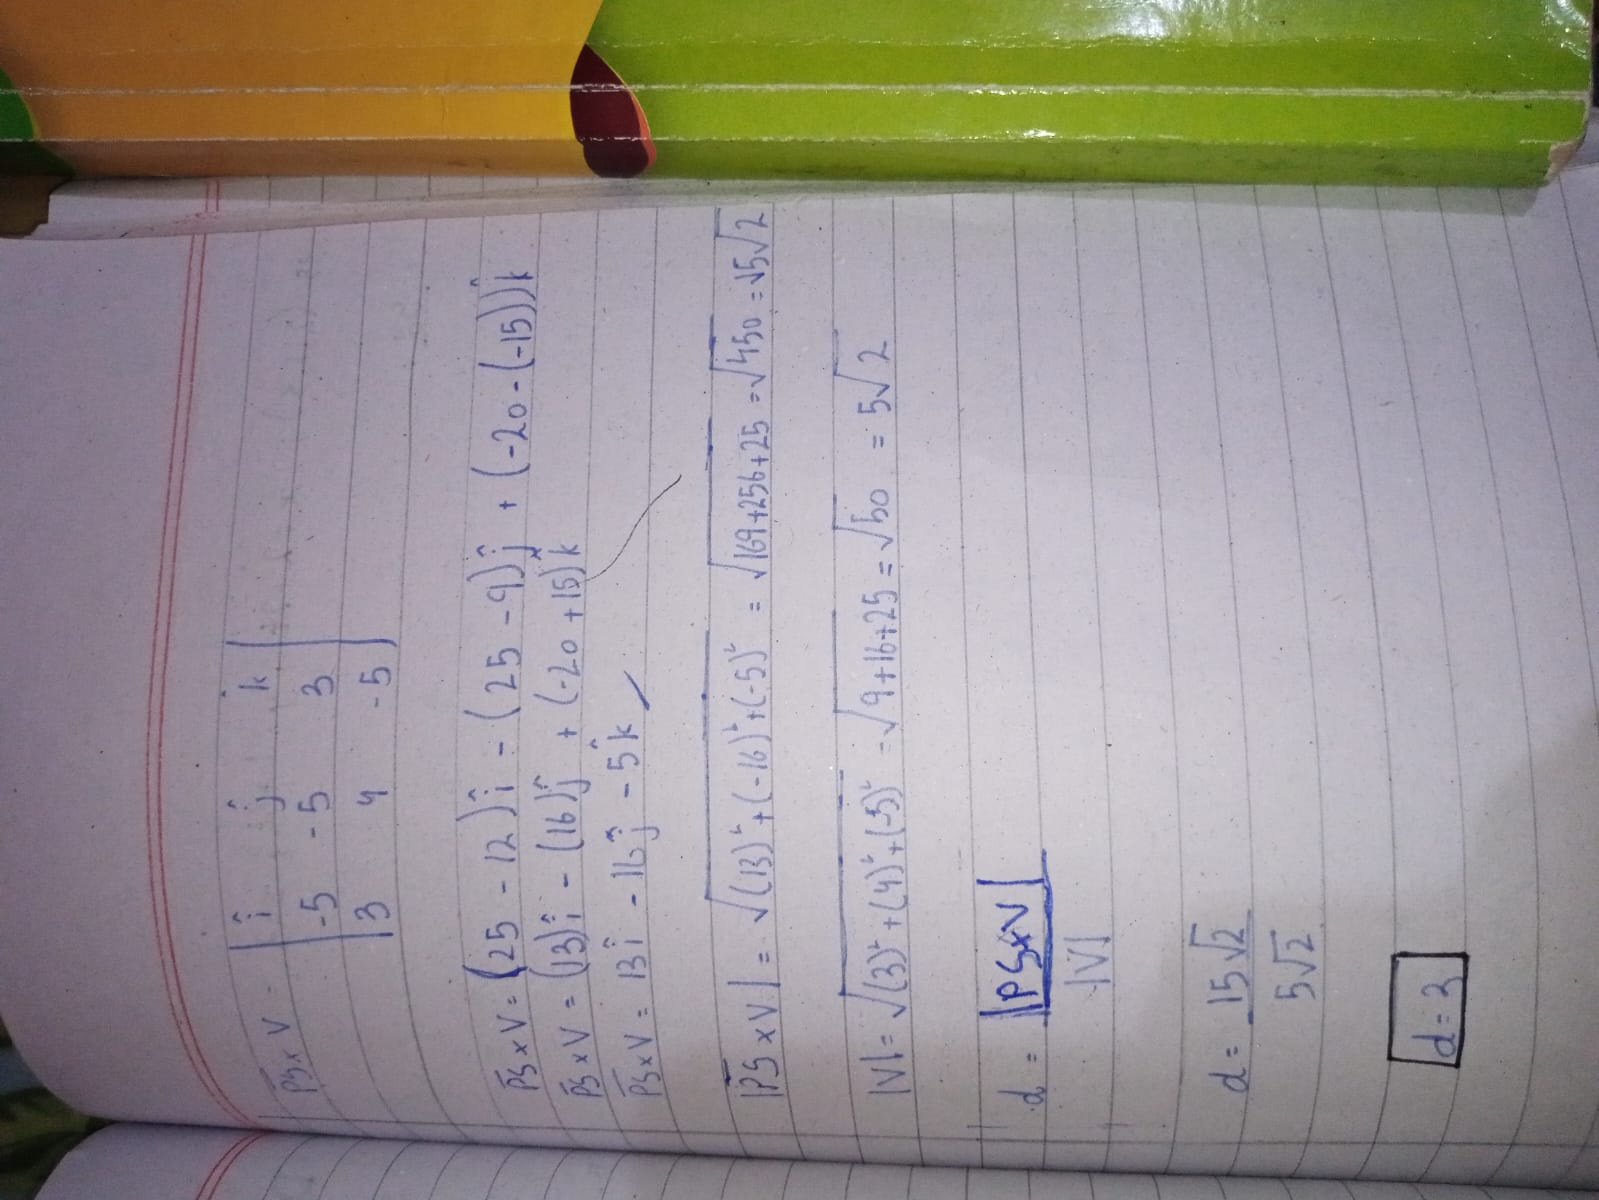 PS × V = | î ĵ k |
| -5 -5 3 |
| 3 4 -5 |
PS × V = (25 - 12) î - (25 - 9) ĵ + (-20 - (-15)) k̂
PS × V = (13) î - (16) ĵ + (-20 + 15) k
PS × V = 13 î - 16 ĵ - 5 k̂
|PS × V| = √(13)² + (-16)² + (-5)² = √169 + 256 + 25 = √450 = √5√2
|V| = √(3)² + (4)² + (-5)² = √9 + 16 + 25 = √50 = 5√2
d = |PS × V|
|V|
d = 15√2
5√2
d = 3